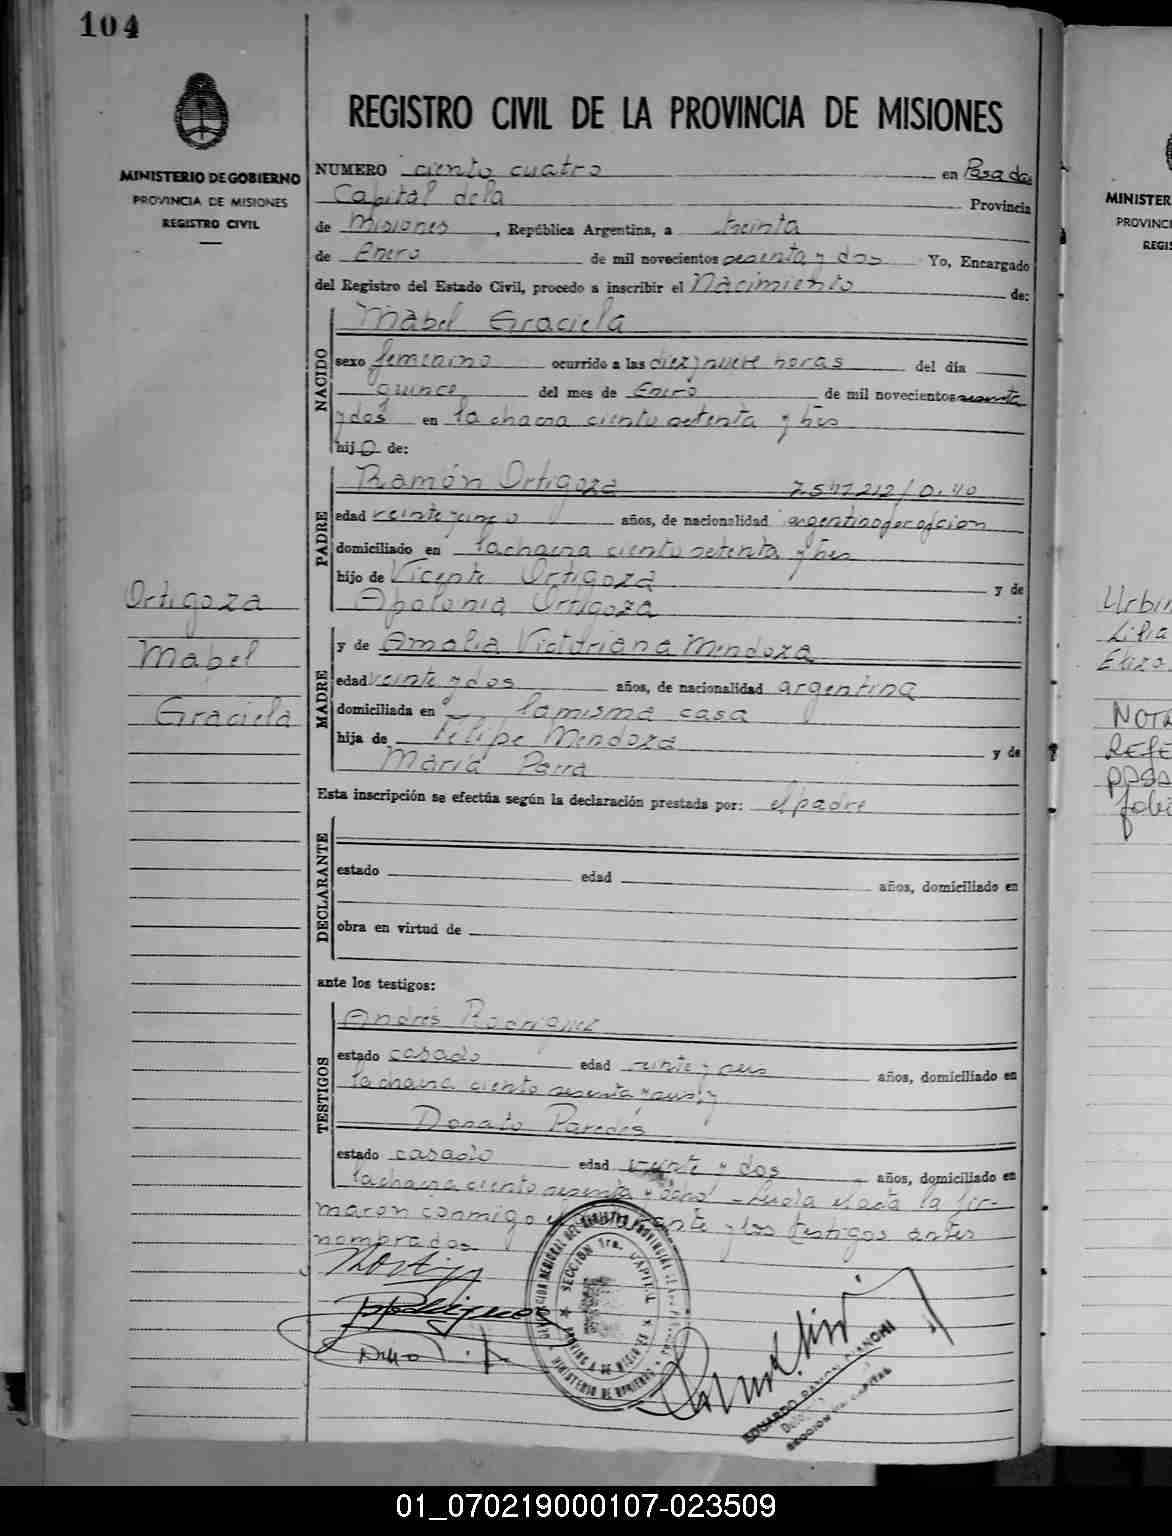 104
MINISTERIO DE GOBIERNO
PROVINCIA DE MISIONES
REGISTRO CIVIL
Ortigoza
Mabel
Graciela
REGISTRO CIVIL DE LA PROVINCIA DE MISIONES
NUMERO ciento cuatro en Posadas
Capital de la Provincia
de Misiones, República Argentina, a treinta
de Enero de mil novecientos sesenta y dos Yo, Encargado
del Registro del Estado Civil, procedo a inscribir el Nacimiento de:
NACIDO
Mabel Graciela
sexo femenino ocurrido a las diez y nueve horas del día
quince del mes de Enero de mil novecientos sesenta
y dos en la chacra ciento setenta y tres
hijo de:
PADRE
Ramón Ortigoza
edad veinte y cinco años, de nacionalidad argentino por opcion
domiciliado en la chacra ciento setenta y tres
hijo de Vicente Ortigoza y de
Apolonia Ortigoza
MADRE
y de Amalia Victoriana Mendoza
edad veinte y dos años, de nacionalidad argentina
domiciliada en la misma casa
hija de Felipe Mendoza y de
Maria Parra
Esta inscripción se efectúa según la declaración prestada por: el padre
DECLARANTE
estado edad años, domiciliado en
obra en virtud de
ante los testigos:
TESTIGOS
Andrés Rodriguez
estado casado edad veinte y años, domiciliado en
la chacra ciento sesenta y
Donato Paredes
estado casado edad veinte y dos años, domiciliado en
la chacra ciento sesenta y ocho - Leida el acta la fir-
maron conmigo el y los testigos antes
nombrados
SECCION 1ra. CAPITAL
EDUARDO RAMON BIANCHI
SECCION CAPITAL
MINISTER
PROVINC
REGIS
Urbin
Lilia
NOTA
REFE
01_070219000107-023509